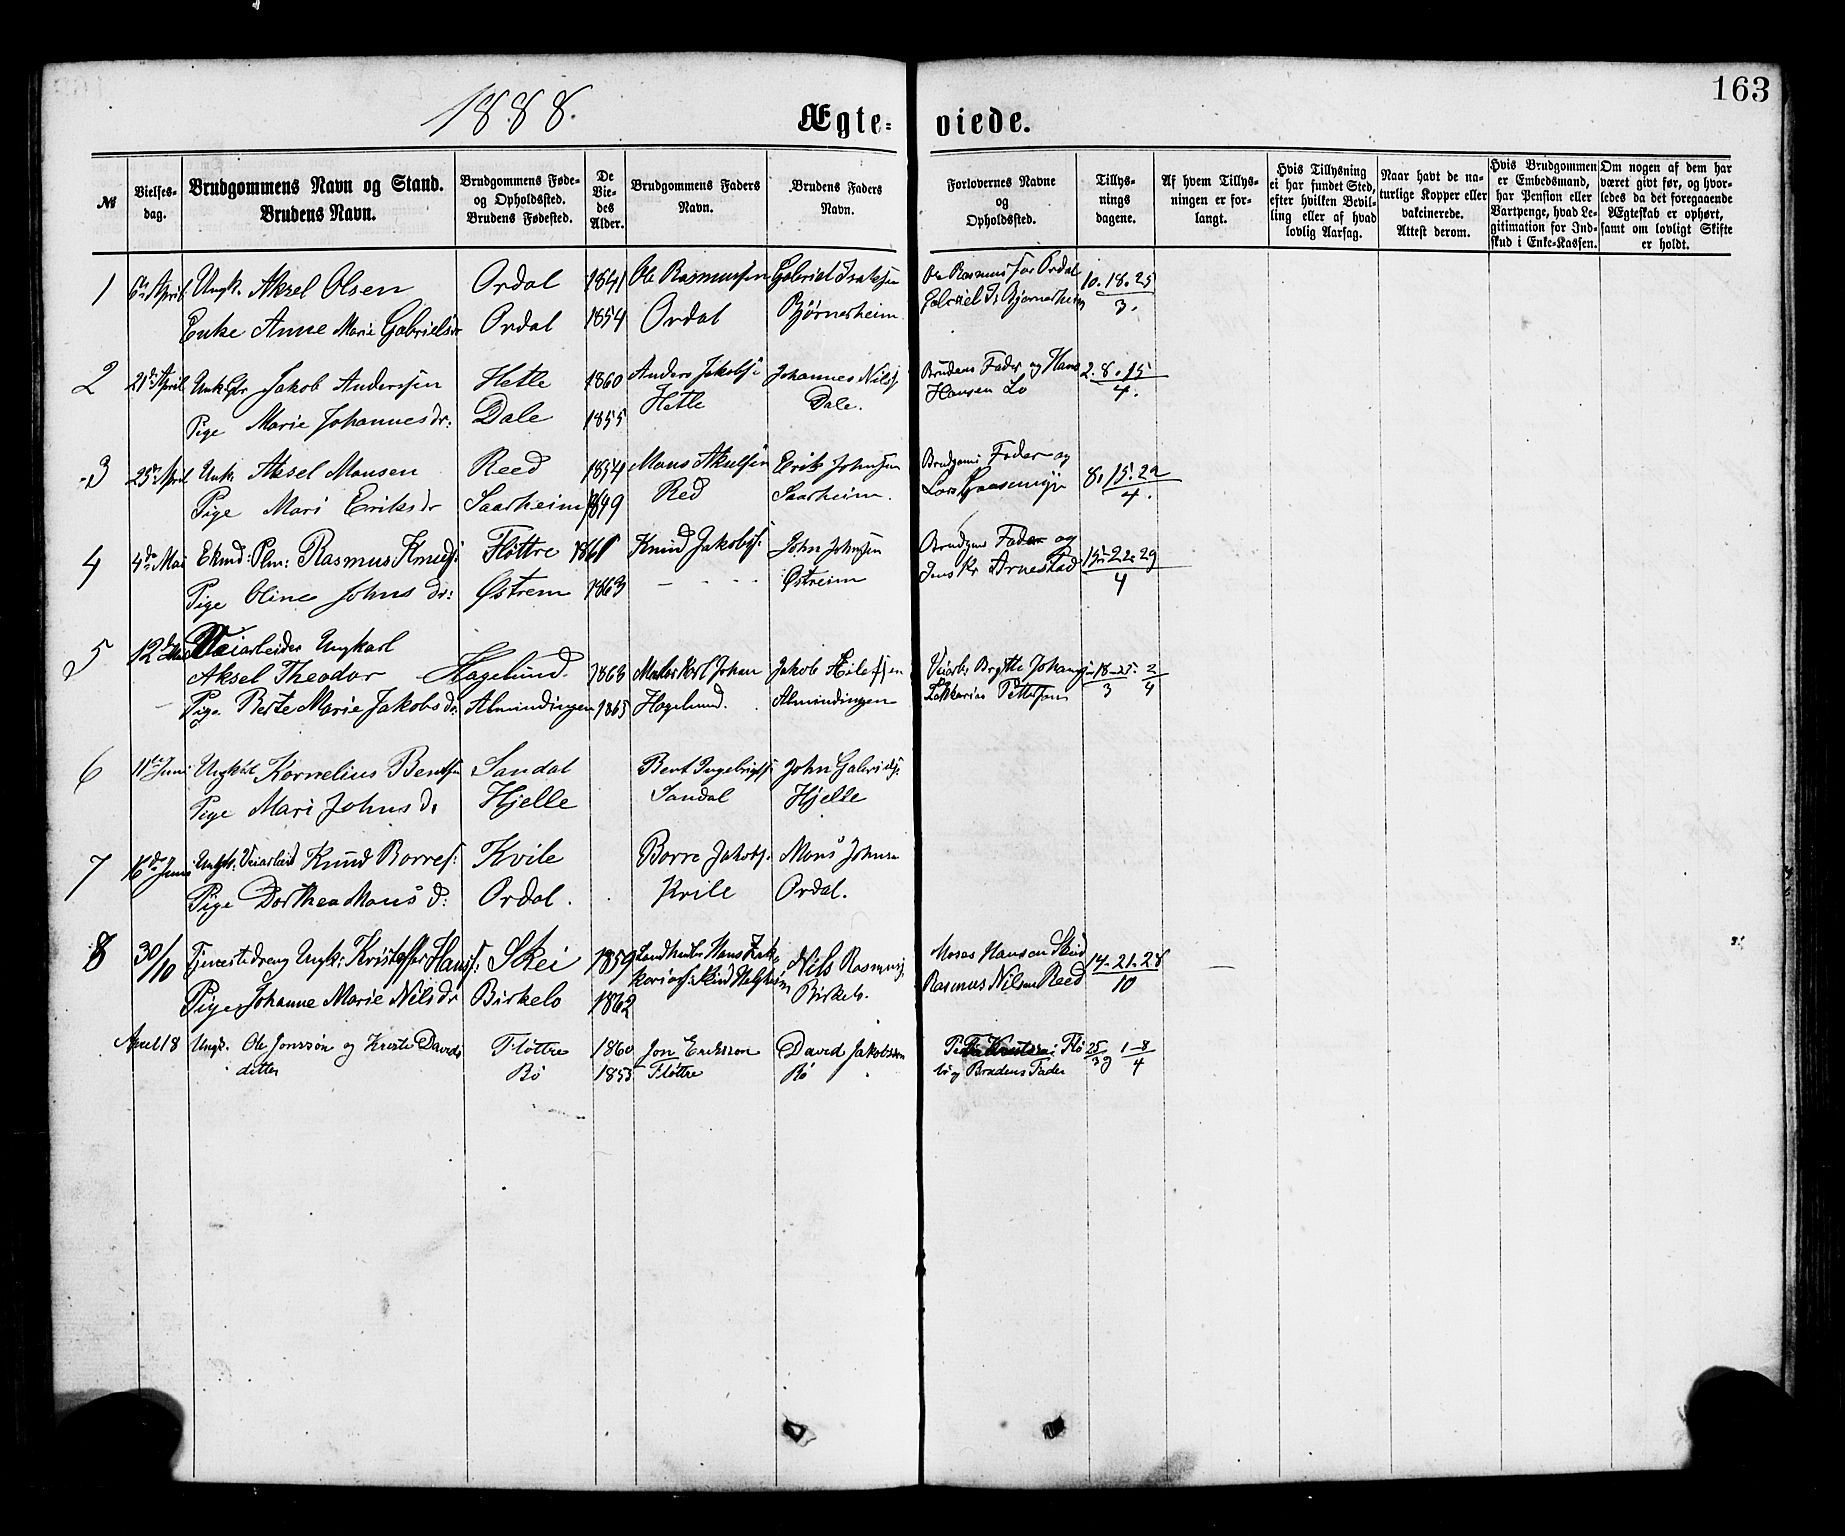 163
1888.
Ægte=
viede.
№
Vielses-
dag.
Brudgommens Navn og Stand.
Brudens Navn.
Brudgommens Føde-
og Opholdssted.
Brudens Fødested.
De
Vie-
des
Alder.
Brudgommens Faders
Navn.
Brudens Faders
Navn.
Forlovernes Navne
og
Opholdssted.
Tillys-
nings
dagene.
Af hvem Tillys-
ningen er for-
langt.
Hvis Tillysning
ei har fundet Sted,
efter hvilken Bevil-
ling eller af hvad
lovlig Aarsag.
Naar havt de na-
turlige Kopper eller
vakcinerede.
Attest derom.
Hvis Brudgommen
er Embedsmand,
har Pension eller
Vartpenge, hvad Le-
gitimation for Ind-
skud i Enke-Kassen.
Om nogen af dem har
været givt før, og hvor-
ledes da det foregaaende
Ægteskab er ophørt,
samt om lovligt Skifte
er holdt.
1 6te April Ungk. Aksel Olsen Ordal 1841 Ole Rasmussen Gabriel Isaksen Ole Rasmus Ordal 10. 18. 25
Enke Anne Marie Gabrielsdr Ordal 1854 Ordal Bjørnerheim Gabriel Is Bjørnerheim 3.
2 21de April Jakob Anderssen Hetle 1860 Anders Jakobs: Johannes Nils: Brudens Fader og Hans 2. 8. 15
Pige Marie Johannesdr: Dale 1855 Hetle Dale. Hansen Lo 4.
3 25de April Ungk. Aksel Monsen Reed 1854 Mons Akselsen Erik Johnsen Brudgoms Fader og 8. 15. 22
Pige Mari Eriksdr Saarheim 1849 Red Saarheim. Lars 4.
4 4de Mai Ekmd: Plm: Rasmus Knuds: Fløttre 1861 Knud Jakobs: John Johnsen Brudgoms Fader og 15. 22. 29
Pige Oline Johnsdr: Østrem 1863 — Østreim Jens Kr Arnestad 4
5 12 Mai Veiarbeider Ungkarl
Aksel Theodor Hagelund. 1863 Maler Karl Johan Jakob Brytte Johans 18-25 2
Pige Berte Marie Jakobsdr: Almindingen 1865 Hagelund. Almindingen Zakkarias Pettersen 3 4
6 11te Juni Ungkarl Kornelius Bentsen Sandal Bent Ingebrigts: John Gabriels:
Pige Mari Johnsdr Hjelle Sandal Hjelle
7 16de Juni Ungk. Veiarbeid Knud Borres: Kvile Borre Jakobs. Mons Johnsen
Pige Dorthea Monsd: Ordal. Kvile Ordal.
8 30/10 Tjenestedreng Ungk: Kristoffer Hans: Skei 1859 Hans Zak- Nils Rasmus: Moses Hansen Skeid 14-21-28 —
Pige Johanne Marie Nilsdr Birkelo 1862 Skeid Birkelo. Rasmus Nilsen Reed 10
April 18 Ungk. Ole Jonssøn og Kristi Davids Fløttre 1860 Jon Erikssøn David Jakobssøn 25 1-8
datter Bø 1855 Fløttre Bø og Brudens Fader 3 og 4